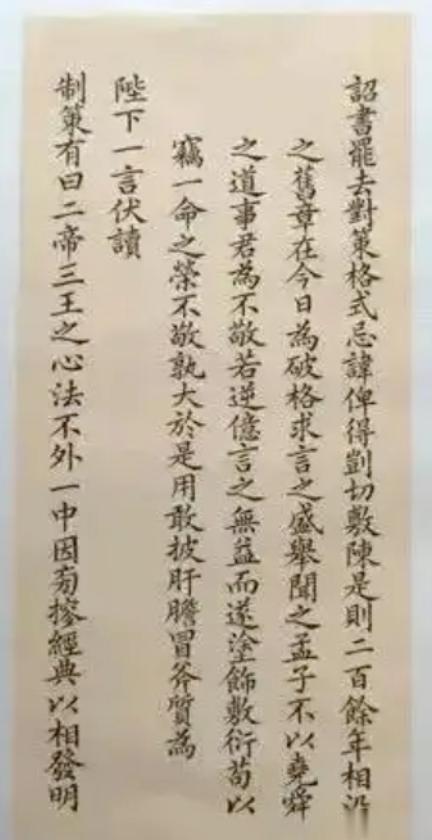 詔書罷去對策格式忌諱俾得剴切敷陳是則二百餘年相沿
之舊章在今日為破格求言之盛舉聞之孟子不以堯舜
之道事君為不敬若逆億言之無益而遂塗飾敷衍苟以
竊一命之榮不敬孰大於是用敢披肝膽冒斧質為
陛下一言伏讀
制策有曰二帝三王之心法不外一中因匄搽經典以相發明